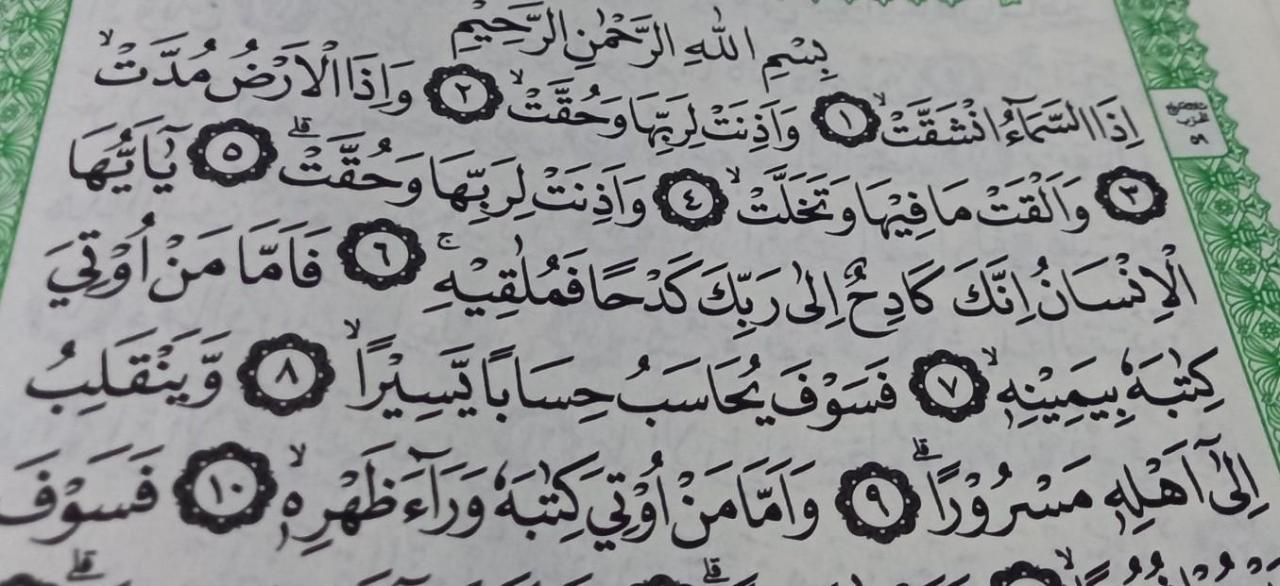 بِسْمِ اللّٰهِ الرَّحْمٰنِ الرَّحِيْمِ
اِذَا السَّمَاۤءُ انْشَقَّتْۙ ١ وَاَذِنَتْ لِرَبِّهَا وَحُقَّتْۙ ٢ وَاِذَا الْاَرْضُ مُدَّتْۙ
٣ وَاَلْقَتْ مَا فِيْهَا وَتَخَلَّتْۙ ٤ وَاَذِنَتْ لِرَبِّهَا وَحُقَّتْۗ ٥ يٰٓاَيُّهَا
الْاِنْسَانُ اِنَّكَ كَادِحٌ اِلٰى رَبِّكَ كَدْحًا فَمُلٰقِيْهِۚ ٦ فَاَمَّا مَنْ اُوْتِيَ
كِتٰبَهٗ بِيَمِيْنِهٖۙ ٧ فَسَوْفَ يُحَاسَبُ حِسَابًا يَّسِيْرًاۙ ٨ وَّيَنْقَلِبُ
اِلٰٓى اَهْلِهٖ مَسْرُوْرًاۗ ٩ وَاَمَّا مَنْ اُوْتِيَ كِتٰبَهٗ وَرَاۤءَ ظَهْرِهٖۙ ١٠ فَسَوْفَ